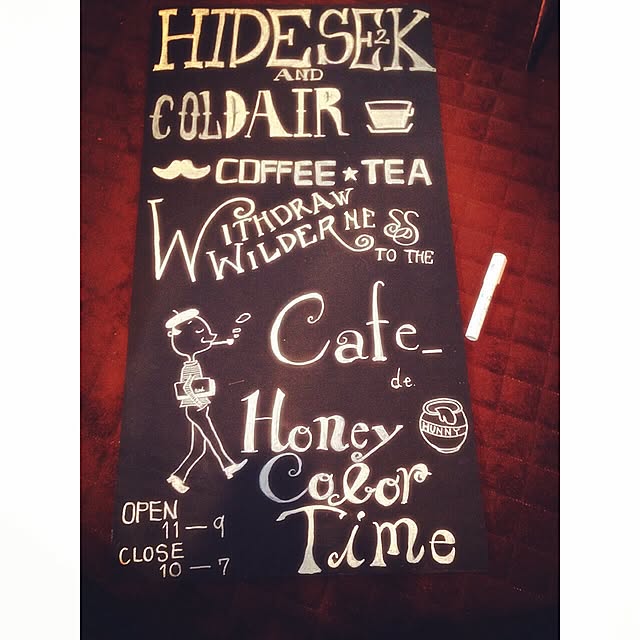 HIDESE2K
AND
COLDAIR
COFFEE★TEA
WITHDRAW
WILDERNESS
TO THE
Cafe_
de.
Honey
HUNNY
Color
Time
OPEN
11-9
CLOSE
10-7